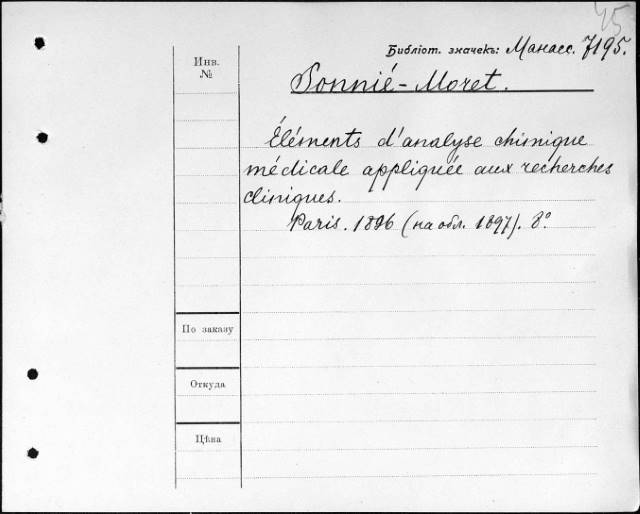 45
Библіот. значекъ: Манасс. 7195.
Инв.
№
Ponnié-Moret.
Éléments d'analyse chimique
médicale appliquée aux recherches
cliniques.
Paris. 1896 (на обл. 1897). 8°.
По заказу
Откуда
Цѣна